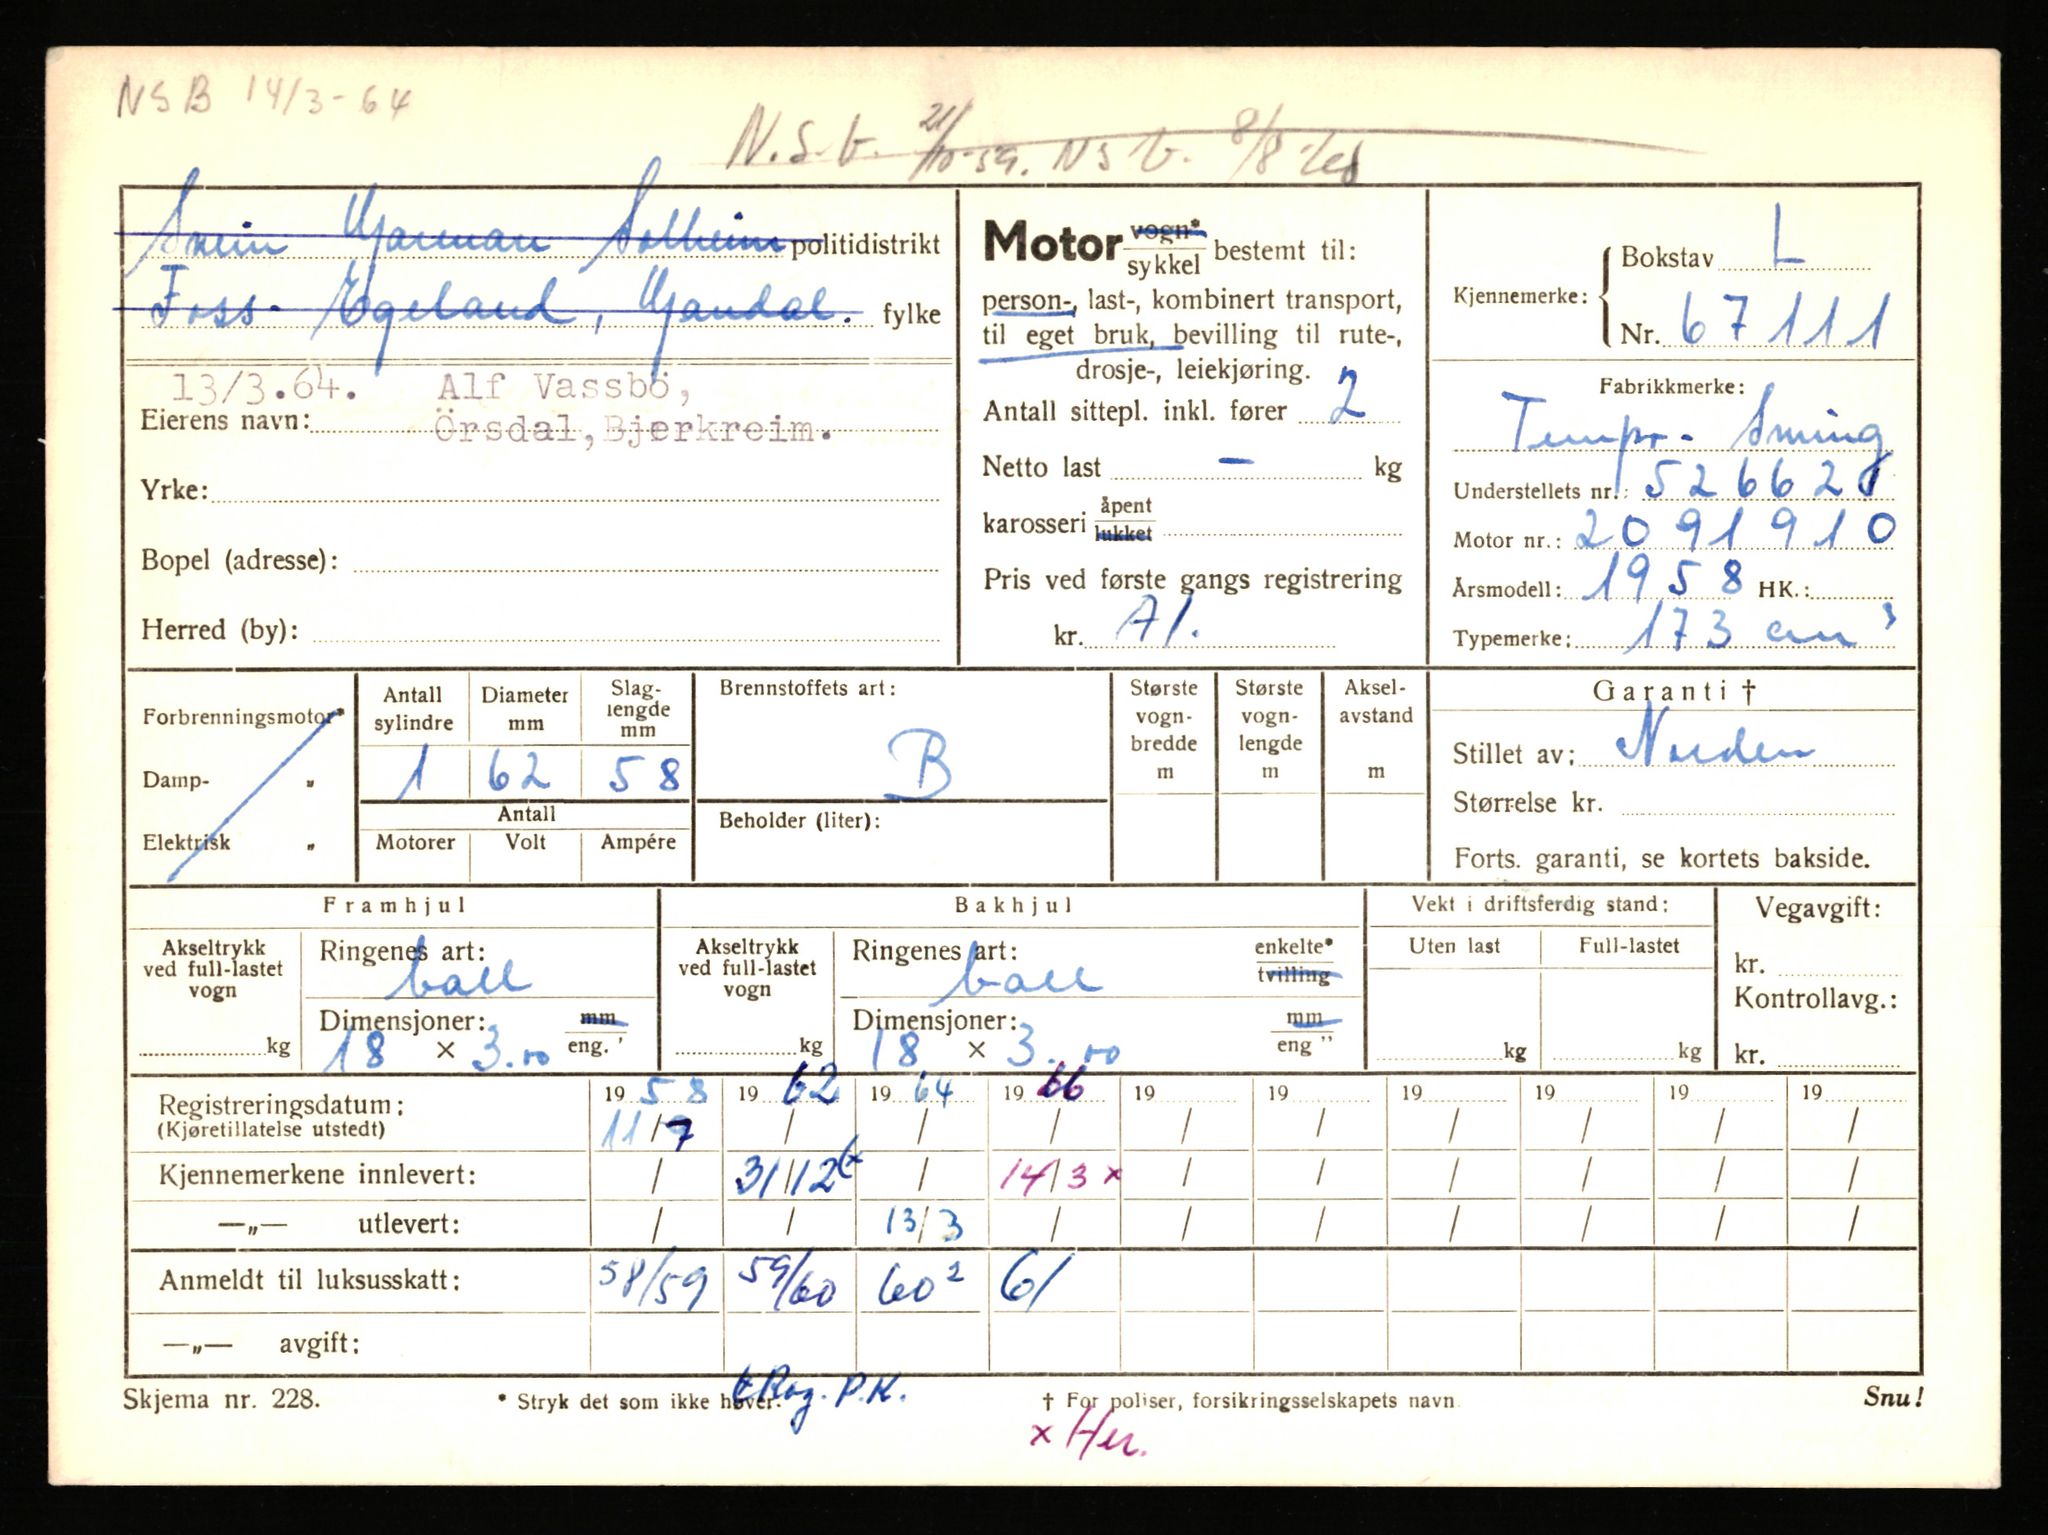 NSB 14/3-64
N.S.b. 21/10-59. NS b. 8/8
Svein Hjarman Solheim politidistrikt
Foss-Egeland, Mandal. fylke
13/3.64. Alf Vassbö,
Eierens navn: Örsdal, Bjerkreim.
Yrke:
Bopel (adresse):
Herred (by):
Motor vogn* sykkel bestemt til:
person-, last-, kombinert transport,
til eget bruk, bevilling til rute-,
drosje-, leiekjøring.
Antall sittepl. inkl. fører 2
Netto last – kg
karosseri åpent lukket
Pris ved første gangs registrering
kr. A/.
Kjennemerke: Bokstav L
Nr. 67111
Fabrikkmerke:
Tempo- Swing
Understellets nr.: 526621
Motor nr.: 2091910
Årsmodell: 1958 HK.:
Typemerke: 173 cm³
Forbrenningsmotor*
Damp- „
Elektrisk „
Antall sylindre
Diameter mm
Slag-lengde mm
1 62 58
Antall
Motorer Volt Ampére
Brennstoffets art:
B
Beholder (liter):
Største vogn-bredde m
Største vogn-lengde m
Aksel-avstand m
Garanti †
Stillet av: Norden
Størrelse kr.
Forts. garanti, se kortets bakside.
Framhjul
Akseltrykk ved full-lastet vogn
kg
Ringenes art:
ball
Dimensjoner: mm eng. "
18 × 3.00
Bakhjul
Akseltrykk ved full-lastet vogn
kg
Ringenes art: enkelte* tvilling
ball
Dimensjoner: mm eng "
18 × 3.00
Vekt i driftsferdig stand:
Uten last Full-lastet
kg kg
Vegavgift:
kr.
Kontrollavg.:
kr.
Registreringsdatum: 1958 1962 1964 1966 19 19 19 19 19 19
(Kjøretillatelse utstedt) 11/7 / / / / / / / / /
Kjennemerkene innlevert: / 31/12 (x / 14/3 x / / / / / /
—„— utlevert: / / 13/3 / / / / / / /
Anmeldt til luksusskatt: 58/59 59/60 60² 61
—„— avgift:
Skjema nr. 228. * Stryk det som ikke høver. Rog. P.K. † For poliser, forsikringsselskapets navn. Snu!
x Her.